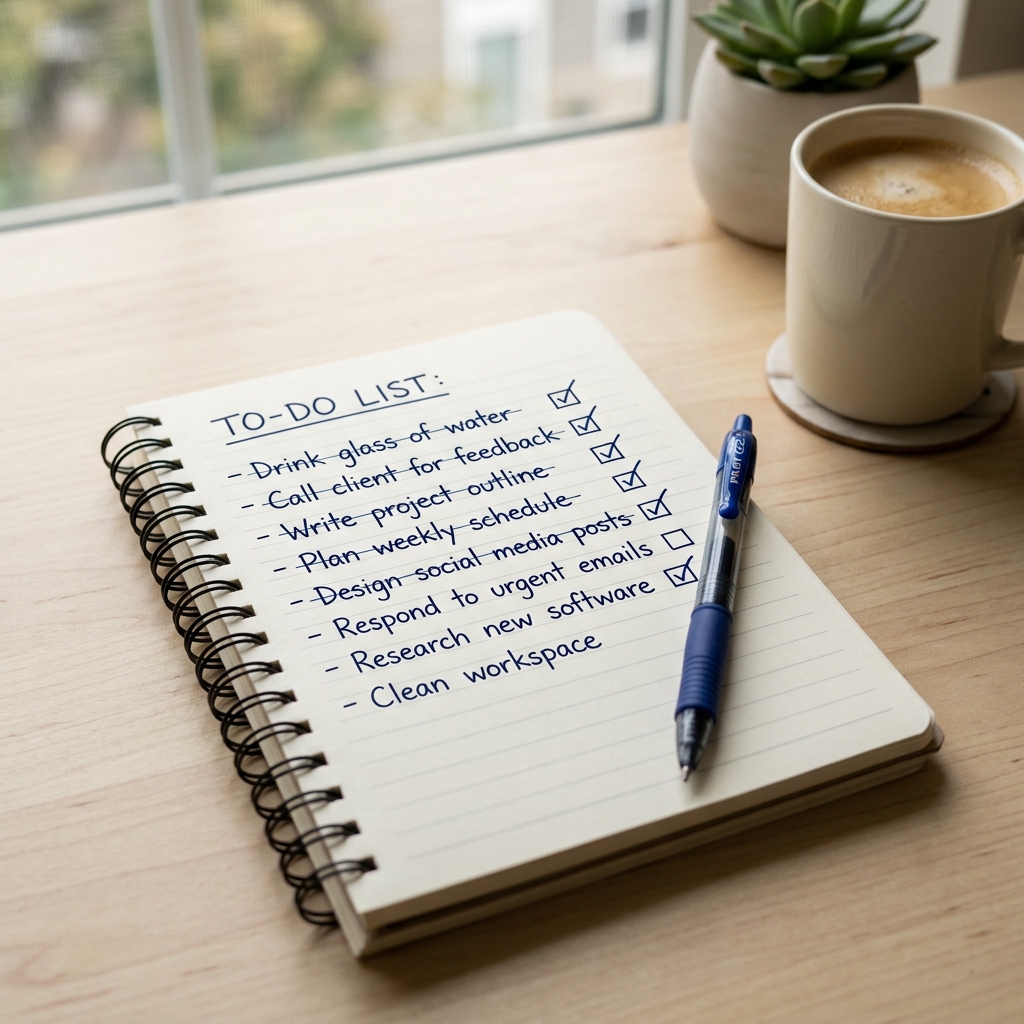 TO-DO LIST:
- Drink glass of water
- Call client for feedback
- Write project outline
- Plan weekly schedule
- Design social media posts
- Respond to urgent emails
- Research new software
- Clean workspace